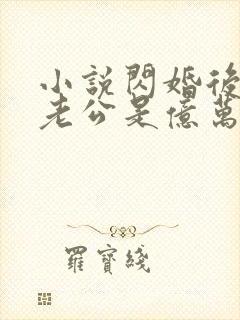 小説閃婚後
老公是億萬
羅寶綫